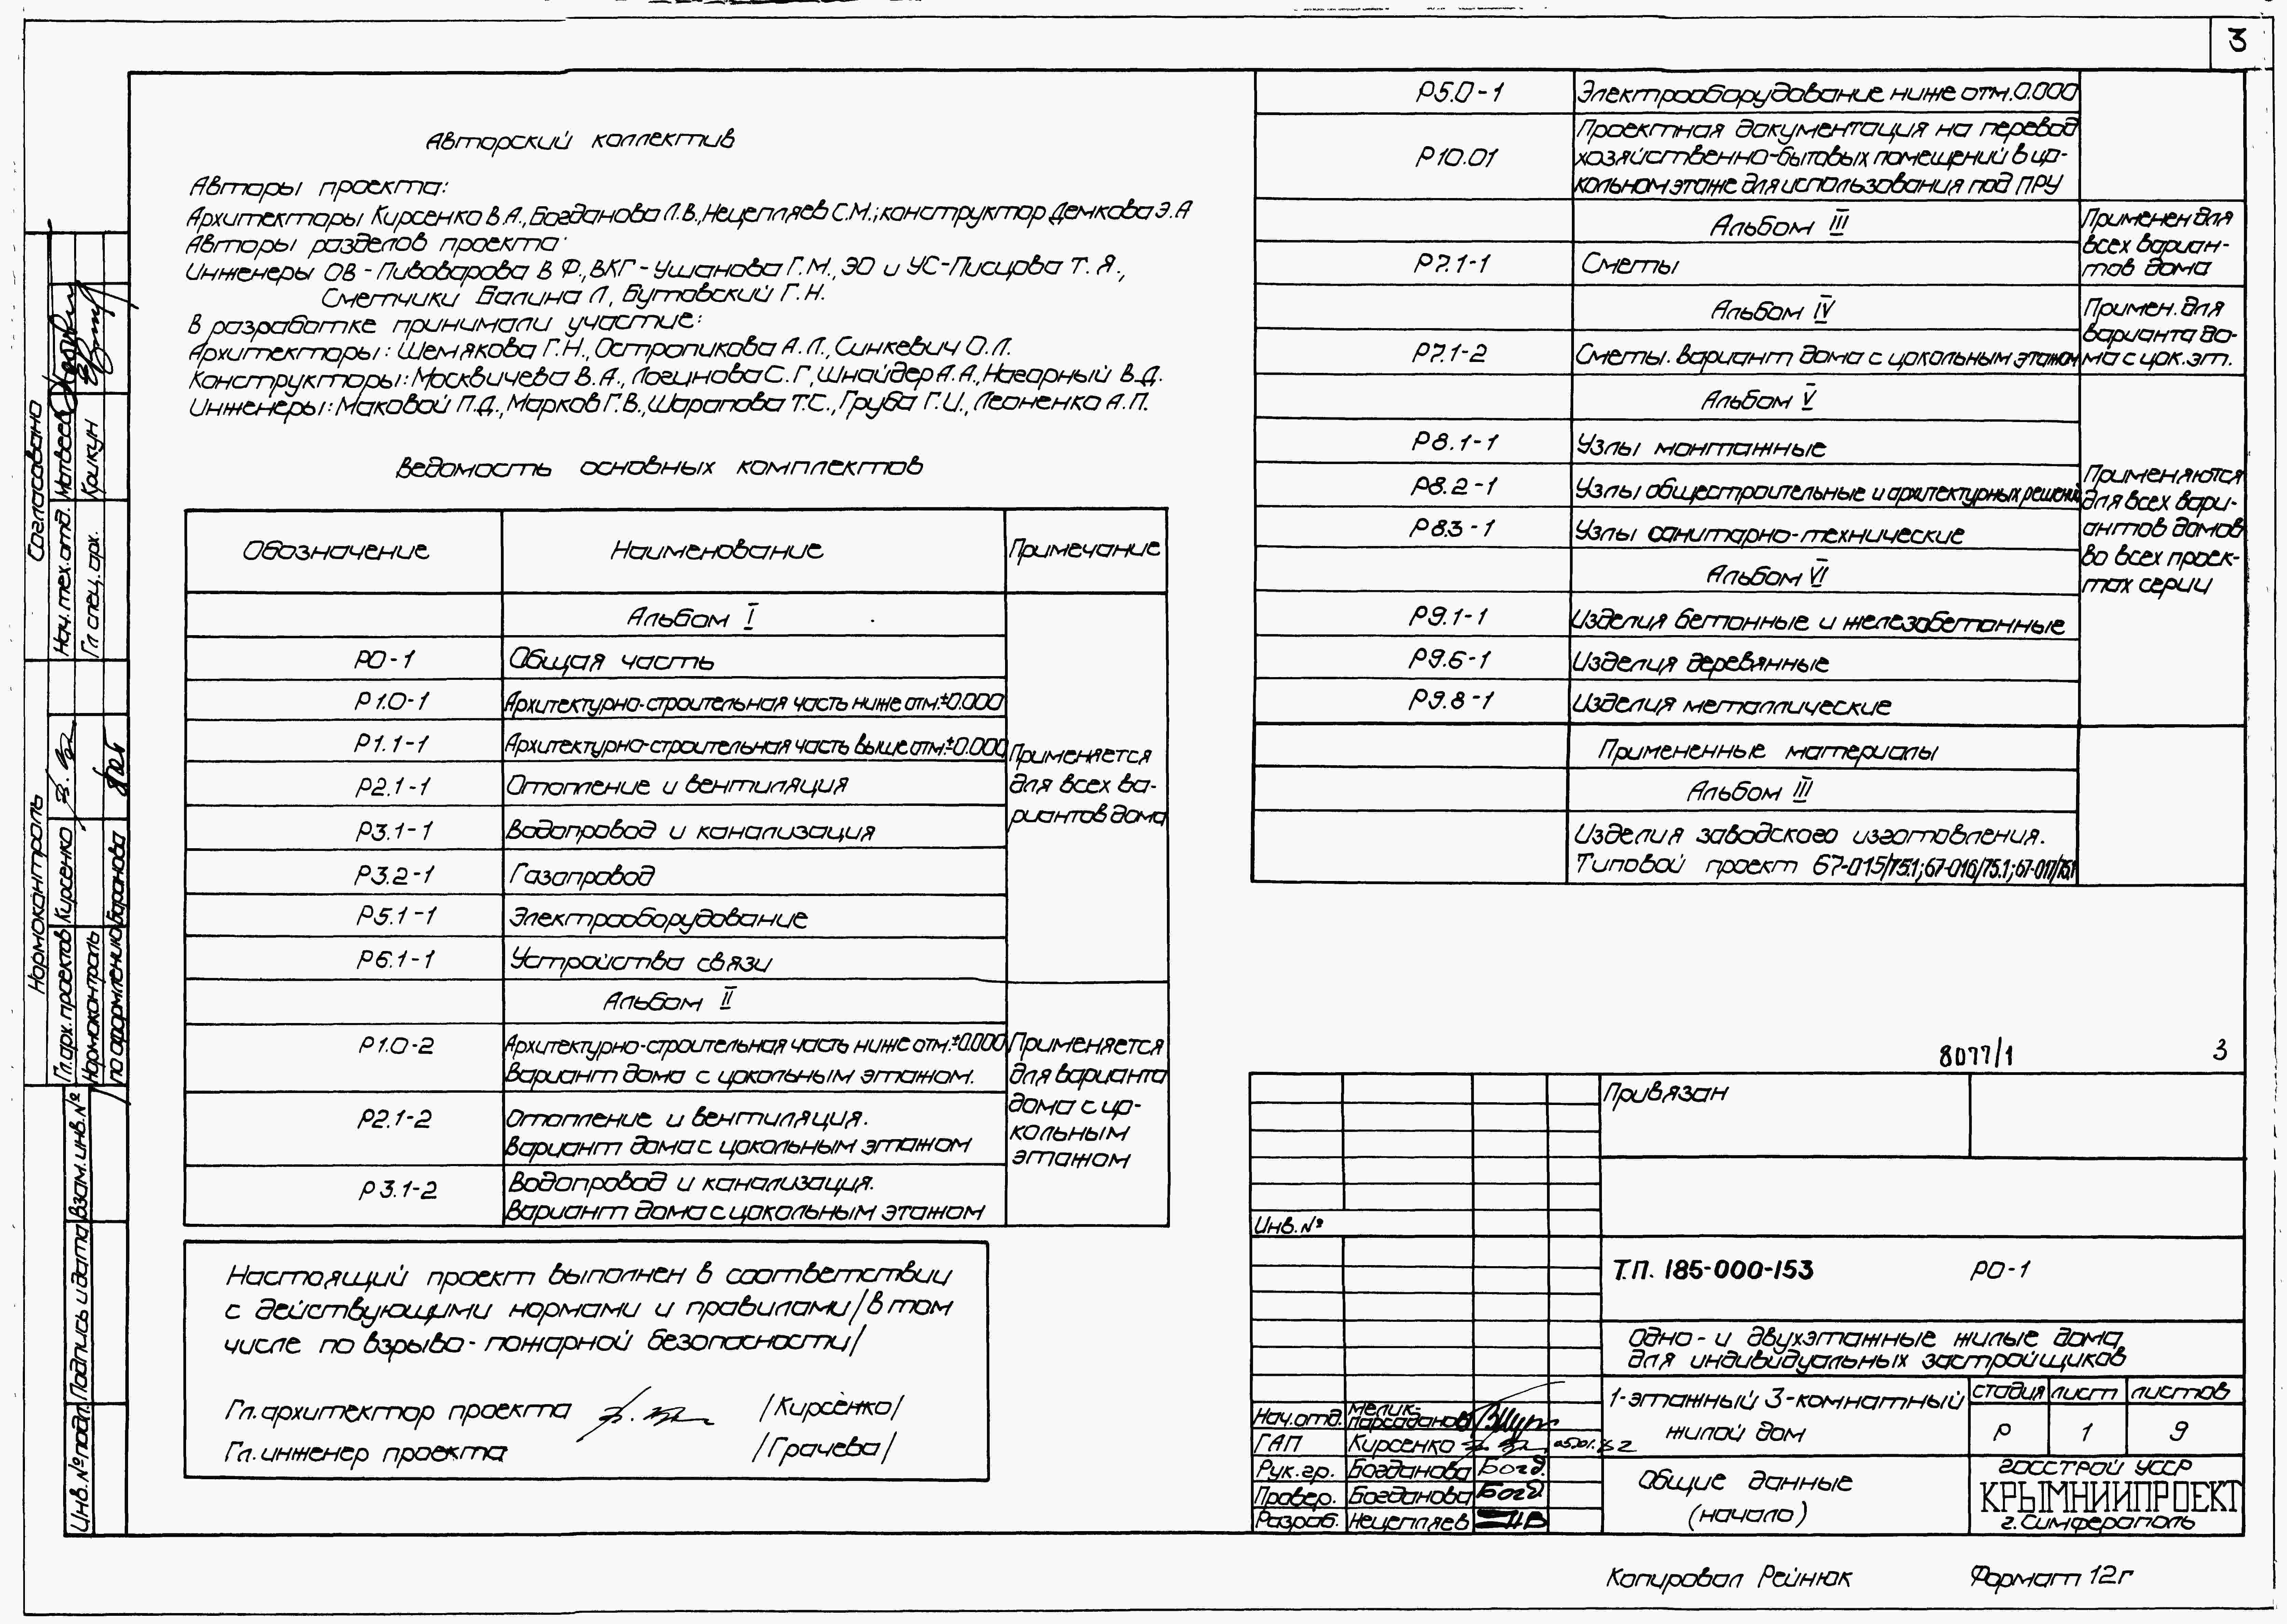 3
Авторский коллектив
Авторы проекта:
Архитекторы Кирсенко В.А., Богданова Л.В., Нецепляев С.М.; конструктор Демкова Э.А
Авторы разделов проекта:
Инженеры ОВ - Пивоварова В Ф., ВКГ - Ушанова Г.М., ЭО и УС - Писцова Т. Я.,
Сметчики Балина Л, Бутовский Г.Н.
В разработке принимали участие:
Архитекторы: Шемякова Г.Н., Остропикова А.Л., Синкевич О.Л.
Конструкторы: Москвичева В.А., Логинова С.Г, Шнайдер А.А., Нагорный В.Д.
Инженеры: Маковой П.Д., Марков Г.В., Шарапова Т.С., Груба Г.И., Леоненко А.П.
Ведомость основных комплектов
Обозначение Наименование Примечание
Альбом I
РО-1 Общая часть
Р1.0-1 Архитектурно-строительная часть ниже отм.±0.000
Р1.1-1 Архитектурно-строительная часть выше отм.±0.000
Р2.1-1 Отопление и вентиляция
Р3.1-1 Водопровод и канализация
Р3.2-1 Газопровод
Р5.1-1 Электрооборудование
Р6.1-1 Устройства связи
Применяется
для всех ва-
риантов дома
Альбом II
Р1.0-2 Архитектурно-строительная часть ниже отм.±0.000
Вариант дома с цокольным этажом.
Р2.1-2 Отопление и вентиляция.
Вариант дома с цокольным этажом
Р3.1-2 Водопровод и канализация.
Вариант дома с цокольным этажом
Применяется
для варианта
дома с цо-
кольным
этажом
Настоящий проект выполнен в соответствии
с действующими нормами и правилами /в том
числе по взрыво-пожарной безопасности/
Гл.архитектор проекта /Кирсенко/
Гл.инженер проекта /Грачева/
Р5.0-1 Электрооборудование ниже отм.0.000
Р10.01 Проектная документация на перевод
хозяйственно-бытовых помещений в цо-
кольном этаже для использования под ПРУ
Альбом III
Р7.1-1 Сметы
Применен для
всех вариан-
тов дома
Альбом IV
Р7.1-2 Сметы. Вариант дома с цокольным этажом
Примен. для
варианта до-
ма с цок.эт.
Альбом V
Р8.1-1 Узлы монтажные
Р8.2-1 Узлы общестроительные и архитектурных решений
Р8.3-1 Узлы санитарно-технические
Альбом VI
Р9.1-1 Изделия бетонные и железобетонные
Р9.6-1 Изделия деревянные
Р9.8-1 Изделия металлические
Применяются
для всех вари-
антов домов
во всех проек-
тах серии
Примененные материалы
Альбом III
Изделия заводского изготовления.
Типовой проект 67-015/75.1; 67-016/75.1; 67-017/75.1
8077/1 3
Привязан
Инв.№
Т.П. 185-000-153 РО-1
Одно- и двухэтажные жилые дома
для индивидуальных застройщиков
1-этажный 3-комнатный
жилой дом
стадия лист листов
Р 1 9
Общие данные
(начало)
ГОССТРОЙ УССР
КРЫМНИИПРОЕКТ
г.Симферополь
Нач.отд. Мелик-
Парсаданов
ГАП Кирсенко
Рук.гр. Богданова Богд.
Провер. Богданова Богд
Разраб. Нецепляев
Копировал Рейнюк Формат 12г
Согласовано
Нач.тех.отд. Матвеев
Гл спец.арх. Крикун
Нормоконтроль
Гл.арх.проектов Кирсенко
Нормоконтроль
по оформлению Баранова
Взам.инв.№
Подпись и дата
Инв.№ подл.